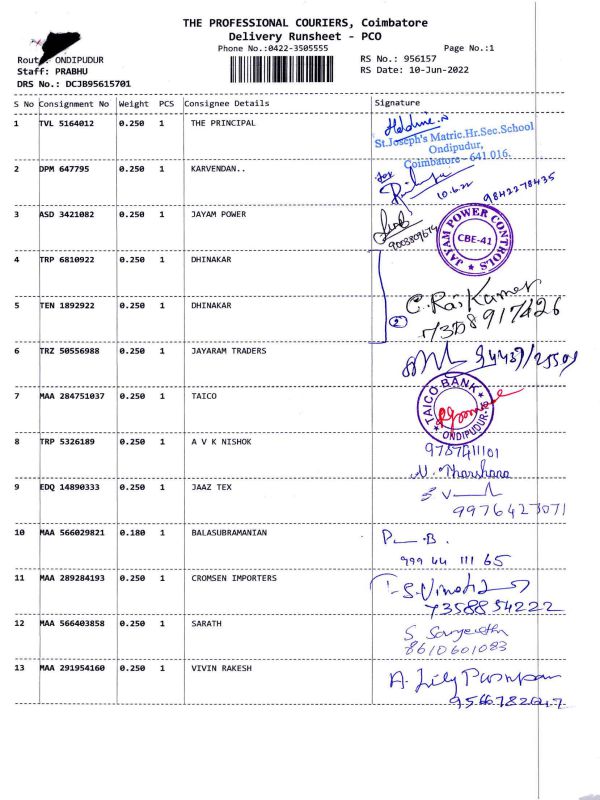 THE PROFESSIONAL COURIERS, Coimbatore
Delivery Runsheet - PCO
Phone No.:0422-3505555 Page No.:1
ONDIPUDUR RS No.: 956157
Staff: PRABHU RS Date: 10-Jun-2022
DRS No.: DCJB95615701
S No Consignment No Weight PCS Consignee Details Signature
1 TVL 5164012 0.250 1 THE PRINCIPAL
St.Joseph's Matric.Hr.Sec.School
Ondipudur,
Coimbatore - 641.016.
2 DPM 647795 0.250 1 KARVENDAN..
for
10.6.22 9842278435
3 ASD 3421082 0.250 1 JAYAM POWER
JAYAM POWER CONTROLS
CBE-41
4 TRP 6810922 0.250 1 DHINAKAR
5 TEN 1892922 0.250 1 DHINAKAR
2 C. Raj Kumar
7358917426
6 TRZ 50556988 0.250 1 JAYARAM TRADERS
7 MAA 284751037 0.250 1 TAICO
TAICO BANK
ONDIPUDUR
8 TRP 5326189 0.250 1 A V K NISHOK
9787411101
9 EDQ 14890333 0.250 1 JAAZ TEX
9976427071
10 MAA 566029821 0.180 1 BALASUBRAMANIAN
999 44 111 65
11 MAA 289284193 0.250 1 CROMSEN IMPORTERS
7358854222
12 MAA 566403858 0.250 1 SARATH
8610601083
13 MAA 291954160 0.250 1 VIVIN RAKESH
A. Lily